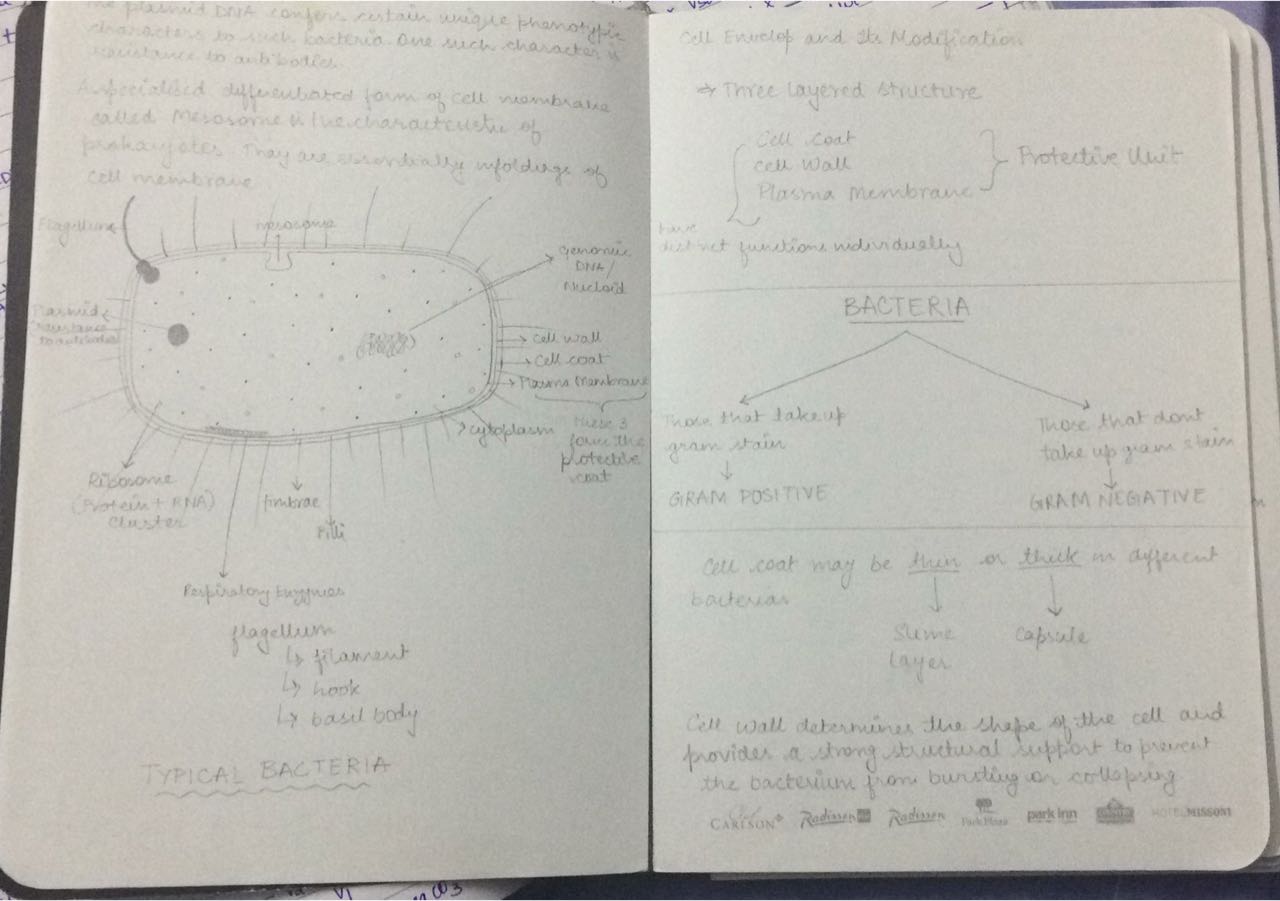 The plasmid DNA confers certain unique phenotypic
characters to such bacteria. One such character is
resistance to antibodies.
A specialised differentiated form of cell membrane
called Mesosome is the characteristic of
prokaryotes. They are essentially infoldings of
cell membrane
Flagellum
mesosome
Genomic
DNA/
Nucloid
Plasmid
resistance
to antibodies
Cell wall
Cell coat
Plasma Membrane
cytoplasm
these 3
form the
protective
coat
Ribosome
(Protein + RNA)
Cluster
fimbrae
Pilli
Respiratory Enzymes
flagellum
↳ filament
↳ hook
↳ basil body
TYPICAL BACTERIA
Cell Envelop and Its Modification
⇒ Three layered structure
Cell coat
Cell Wall
Plasma Membrane
Protective Unit
have
distinct functions individually
BACTERIA
Those that take up
gram stain
GRAM POSITIVE
Those that dont
take up gram stain
GRAM NEGATIVE
Cell coat may be thin or thick in different
bacterias
Slime
layer
Capsule
Cell wall determines the shape of the cell and
provides a strong structural support to prevent
the bacterium from bursting or collapsing
CARLSON Radisson Radisson Park Plaza park inn HOTEL MISSONI